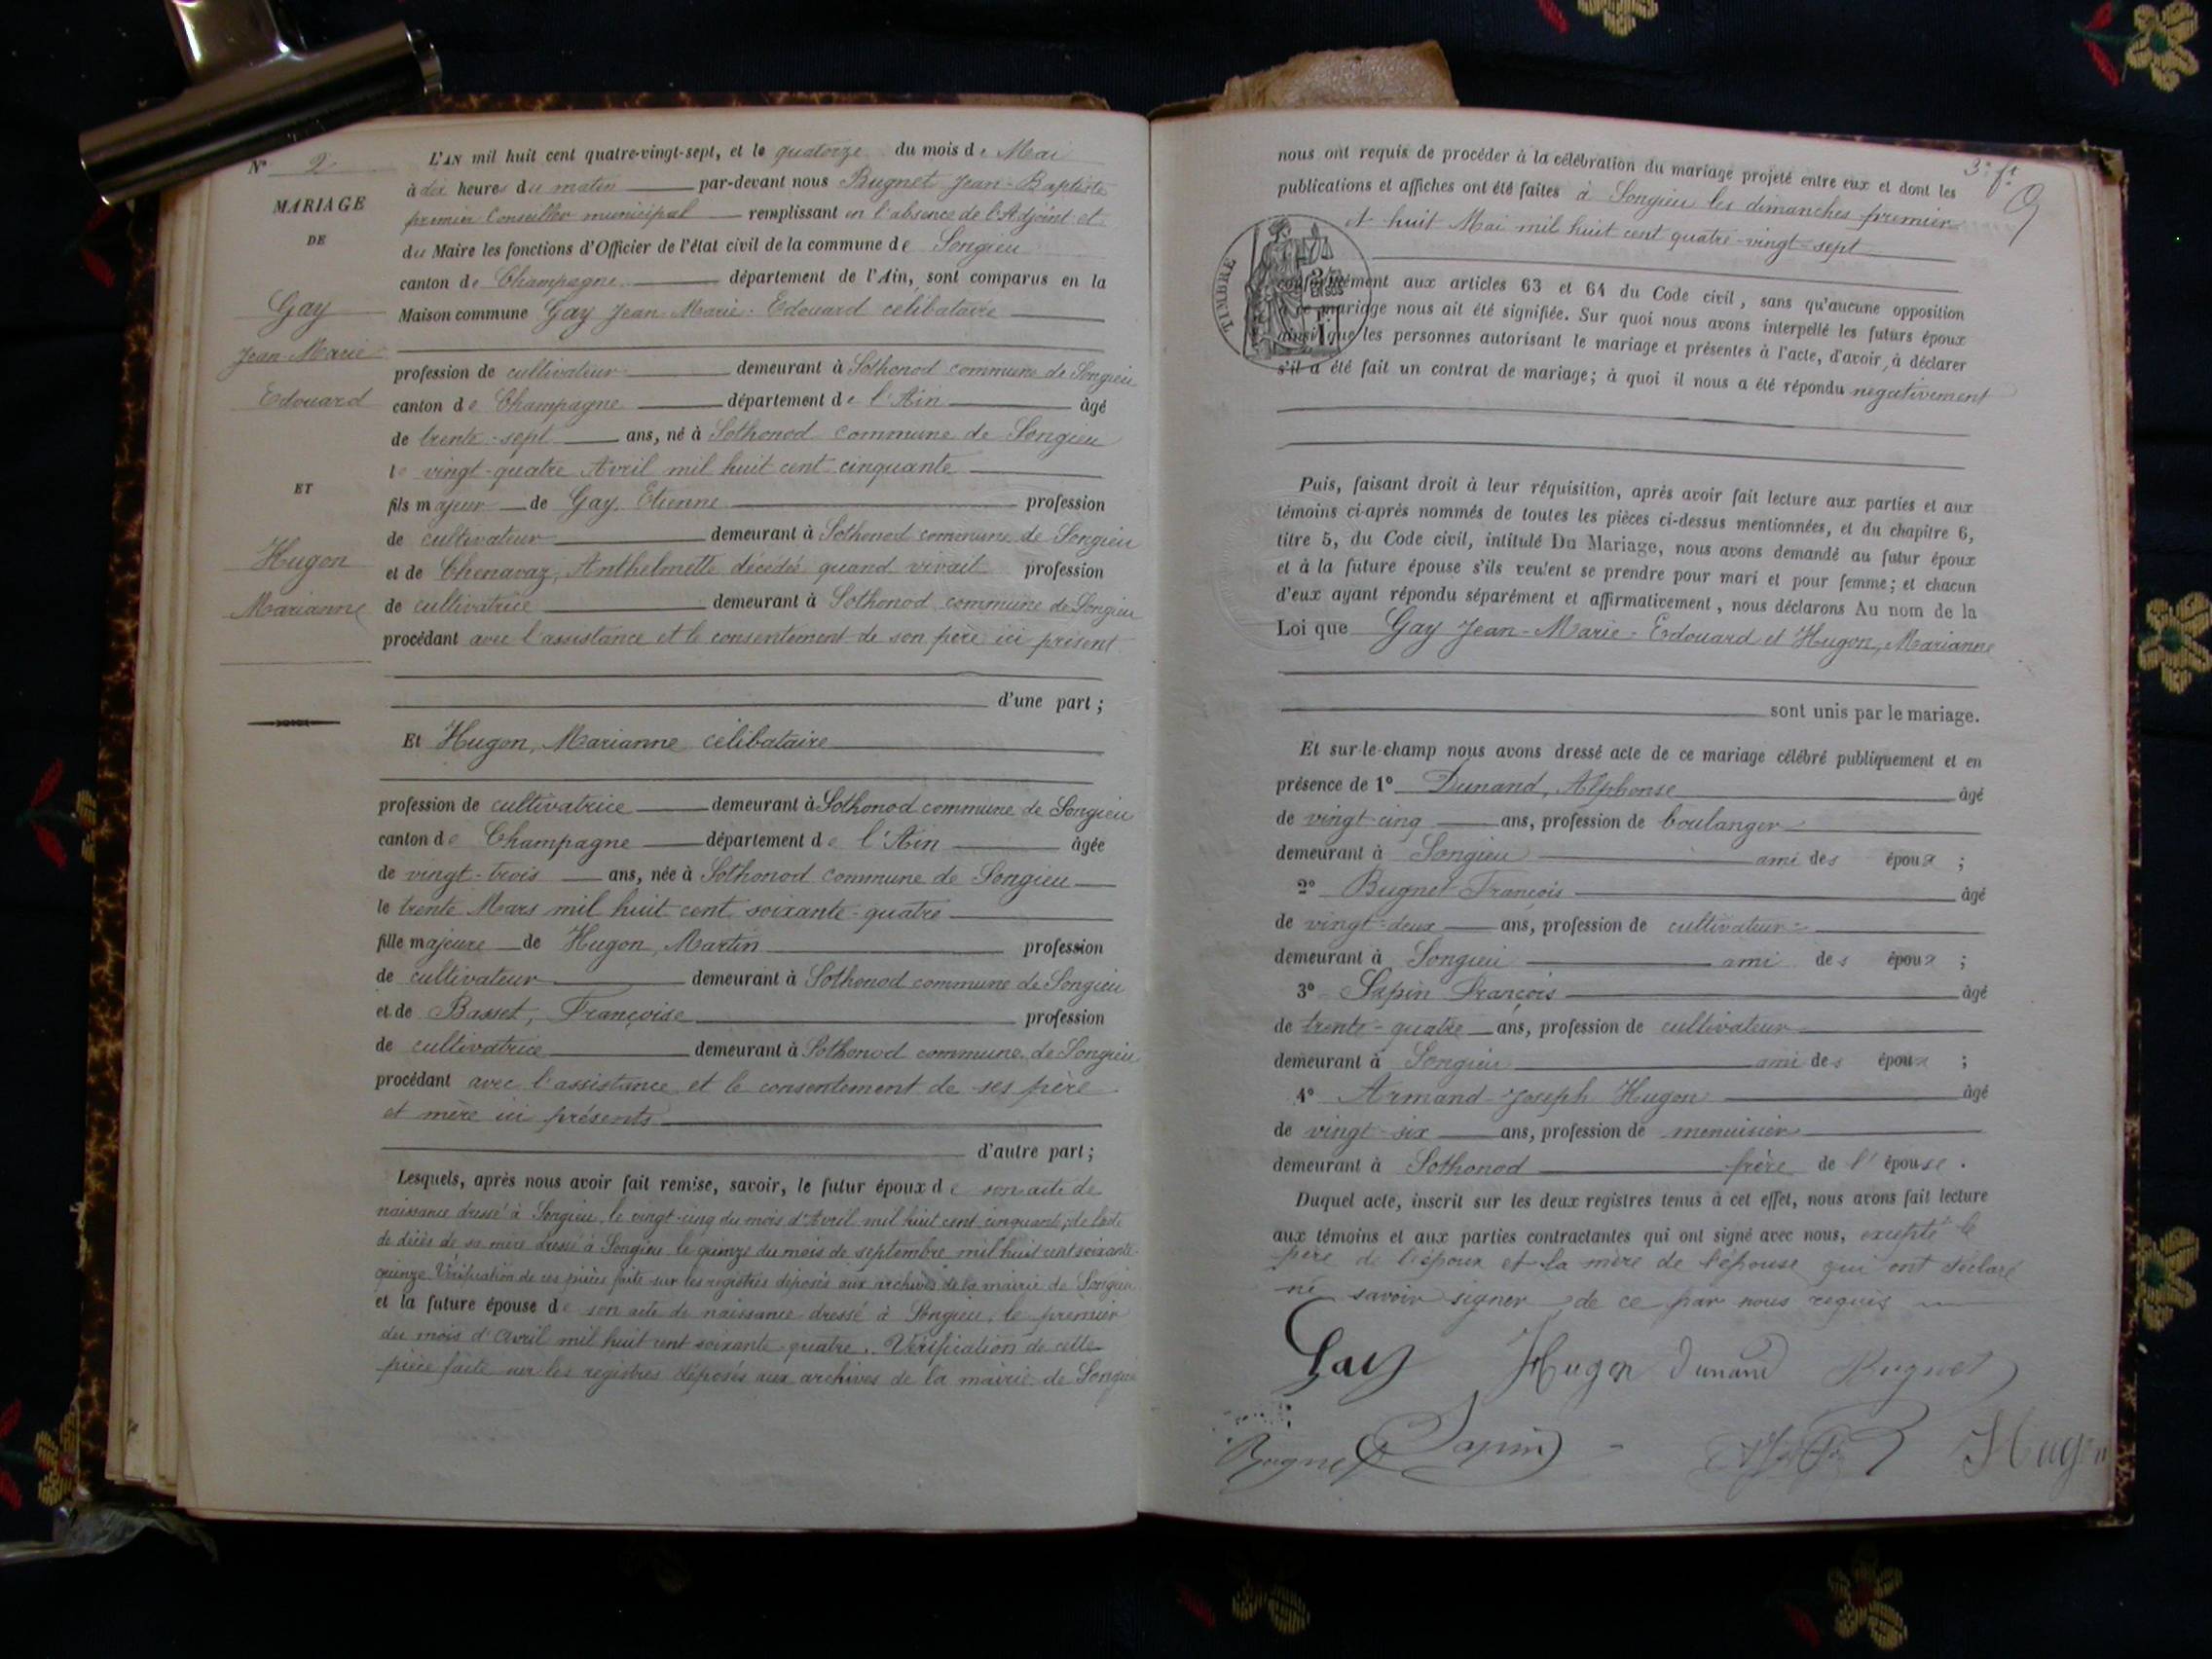 N° 2
MARIAGE
DE
Gay
Jean-Marie
Edouard
ET
Hugon
Marianne
L'AN mil huit cent quatre-vingt-sept, et le quatorze du mois de Mai
à dix heures du matin par-devant nous Bugnet Jean-Baptiste
premier Conseiller municipal remplissant en l'absence de l'Adjoint et
du Maire les fonctions d'Officier de l'état civil de la commune de Songieu
canton de Champagne département de l'Ain, sont comparus en la
Maison commune Gay Jean-Marie-Edouard célibataire
profession de cultivateur demeurant à Sothonod commune de Songieu
canton de Champagne département de l'Ain âgé
de trente-sept ans, né à Sothonod commune de Songieu
le vingt-quatre Avril mil huit cent cinquante
fils majeur de Gay, Etienne profession
de cultivateur demeurant à Sothonod commune de Songieu
et de Chenavaz, Anthelmette décédée quand vivait profession
de cultivatrice demeurant à Sothonod commune de Songieu
procédant avec l'assistance et le consentement de son père ici présent
d'une part ;
Et Hugon, Marianne célibataire
profession de cultivatrice demeurant à Sothonod commune de Songieu
canton de Champagne département de l'Ain âgée
de vingt-trois ans, née à Sothonod commune de Songieu
le trente Mars mil huit cent soixante-quatre
fille majeure de Hugon, Martin profession
de cultivateur demeurant à Sothonod commune de Songieu
et de Basset, Françoise profession
de cultivatrice demeurant à Sothonod commune de Songieu
procédant avec l'assistance et le consentement de ses père
et mère ici présents
d'autre part ;
Lesquels, après nous avoir fait remise, savoir, le futur époux de son acte de
naissance dressé à Songieu, le vingt-cinq du mois d'Avril mil huit cent cinquante, de l'acte
de décès de sa mère dressé à Songieu le quinze du mois de septembre mil huit cent soixante-
quinze. Vérification de ces pièces faite sur les registres déposés aux archives de la mairie de Songieu
et la future épouse de son acte de naissance dressé à Songieu, le premier
du mois d'Avril mil huit cent soixante-quatre. Vérification de cette
pièce faite sur les registres déposés aux archives de la mairie de Songieu
3e ft
nous ont requis de procéder à la célébration du mariage projeté entre eux et dont les
publications et affiches ont été faites à Songieu les dimanches premier
et huit Mai mil huit cent quatre-vingt-sept
TIMBRE
conformément aux articles 63 et 64 du Code civil, sans qu'aucune opposition
à ce mariage nous ait été signifiée. Sur quoi nous avons interpellé les futurs époux
ainsi que les personnes autorisant le mariage et présentes à l'acte, d'avoir, à déclarer
s'il a été fait un contrat de mariage ; à quoi il nous a été répondu négativement
Puis, faisant droit à leur réquisition, après avoir fait lecture aux parties et aux
témoins ci-après nommés de toutes les pièces ci-dessus mentionnées, et du chapitre 6,
titre 5, du Code civil, intitulé Du Mariage, nous avons demandé au futur époux
et à la future épouse s'ils veulent se prendre pour mari et pour femme ; et chacun
d'eux ayant répondu séparément et affirmativement, nous déclarons Au nom de la
Loi que Gay Jean-Marie-Edouard et Hugon, Marianne
sont unis par le mariage.
Et sur-le-champ nous avons dressé acte de ce mariage célébré publiquement et en
présence de 1° Dunand, Alphonse âgé
de vingt-cinq ans, profession de boulanger
demeurant à Songieu ami des époux ;
2° Bugnet François âgé
de vingt-deux ans, profession de cultivateur
demeurant à Songieu ami des époux ;
3° Sapin François âgé
de trente-quatre ans, profession de cultivateur
demeurant à Songieu ami des époux ;
4° Armand-Joseph Hugon âgé
de vingt-six ans, profession de menuisier
demeurant à Sothonod frère de l'épouse.
Duquel acte, inscrit sur les deux registres tenus à cet effet, nous avons fait lecture
aux témoins et aux parties contractantes qui ont signé avec nous, excepté le
père de l'époux et la mère de l'épouse qui ont déclaré
ne savoir signer de ce par nous requis
Gay Hugon Dunand Bugnet
Bugnet Sapin Hugon